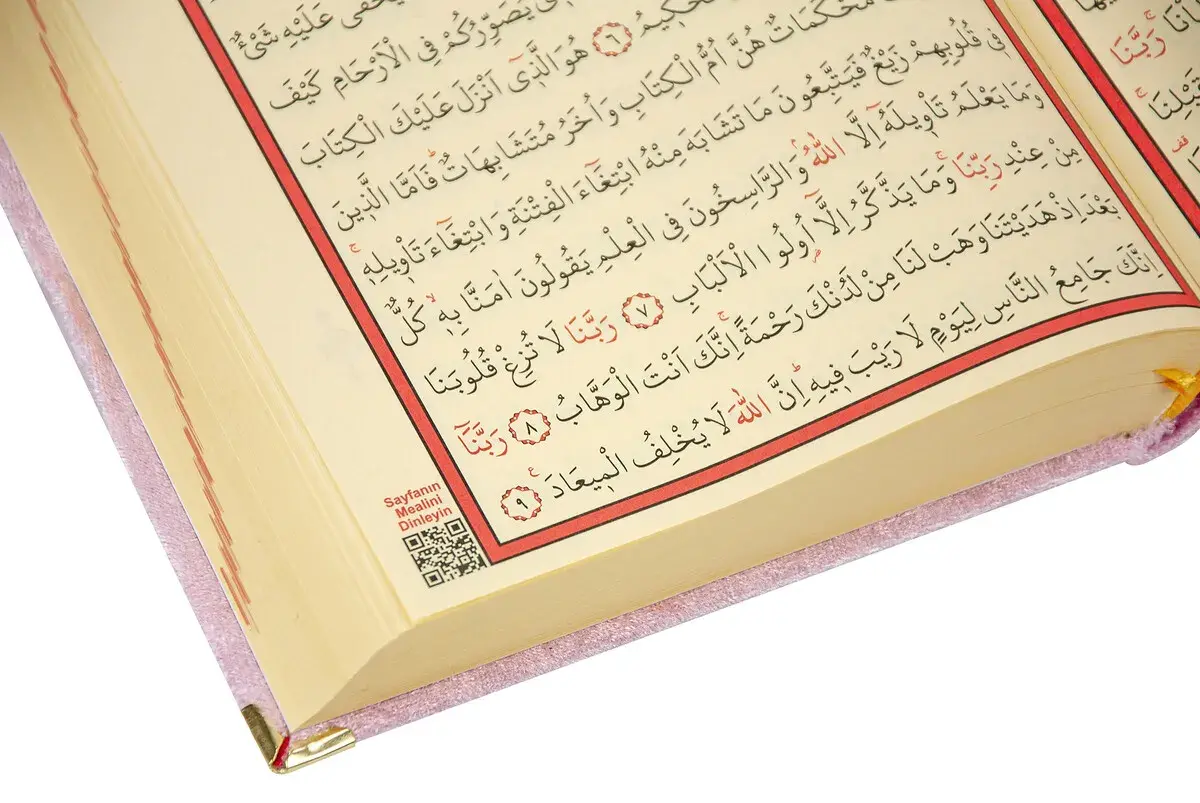 رَبَّنَٓا
يَخْفٰى عَلَيْهِ شَيْءٌ
يُصَوِّرُكُمْ فِي الْاَرْحَامِ كَيْفَ
٦ هُوَ الَّذٖٓي اَنْزَلَ عَلَيْكَ الْكِتَابَ
مُحْكَمَاتٌ هُنَّ اُمُّ الْكِتَابِ وَاُخَرُ مُتَشَابِهَاتٌۜ فَاَمَّا الَّذٖينَ
فٖي قُلُوبِهِمْ زَيْغٌ فَيَتَّبِعُونَ مَا تَشَابَهَ مِنْهُ ابْتِغَٓاءَ الْفِتْنَةِ وَابْتِغَٓاءَ تَأْوٖيلِهٖۚ
وَمَا يَعْلَمُ تَأْوٖيلَهُٓ اِلَّا اللّٰهُۢ وَالرَّاسِخُونَ فِي الْعِلْمِ يَقُولُونَ اٰمَنَّا بِهٖۙ كُلٌّ
مِنْ عِنْدِ رَبِّنَاۚ وَمَا يَذَّكَّرُ اِلَّٓا اُولُوا الْاَلْبَابِ ٧ رَبَّنَا لَا تُزِغْ قُلُوبَنَا
بَعْدَ اِذْ هَدَيْتَنَا وَهَبْ لَنَا مِنْ لَدُنْكَ رَحْمَةًۚ اِنَّكَ اَنْتَ الْوَهَّابُ ٨ رَبَّنَٓا
اِنَّكَ جَامِعُ النَّاسِ لِيَوْمٍ لَا رَيْبَ فٖيهِۜ اِنَّ اللّٰهَ لَا يُخْلِفُ الْمٖيعَادَ ٩
Sayfanın
Mealini
Dinleyin